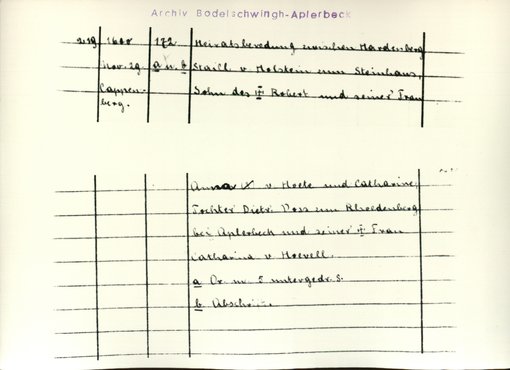 Archiv Bodelschwingh-Aplerbeck
1600 172 Heiratsberedung zwischen Hardenberg
Nov. 29. a u. b Staill v Holstein zum Steinhaus,
Cappen- Sohn des † Robert und seiner Frau
berg.
Anna v. und Catharine,
Tochter Dietr. Voss zum Rhodenberg
bei Aplerbeck und seiner † Frau
Catharina v. Hoevell.
a Or. m. 5 untergedr. S.
b Abschrift.